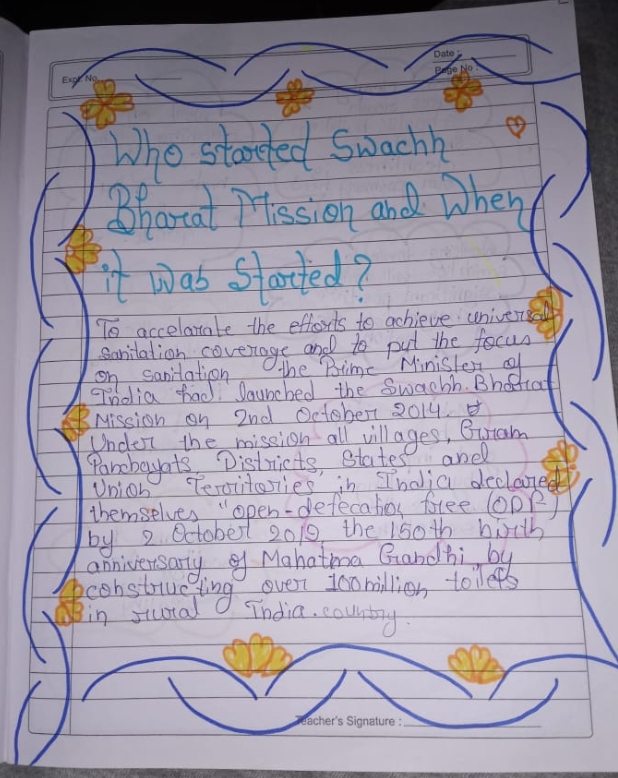 Expt. No.
Date :
Page No :
Who started Swachh
Bharat Mission and When
it Was Started?
To accelarate the efforts to achieve universal
sanitation coverage and to put the focus
on sanitation the Prime Minister of
India had launched the Swachh Bharat
Mission on 2nd October 2014.
Under the mission all villages, Gram
Panchayats, Districts, States and
Union Territories in India declared
themselves "open-defecation free (ODF)
by 2 October 2019, the 150th birth
anniversary of Mahatma Gandhi by
constructing over 100 million toilets
in rural India.country.
Teacher's Signature :